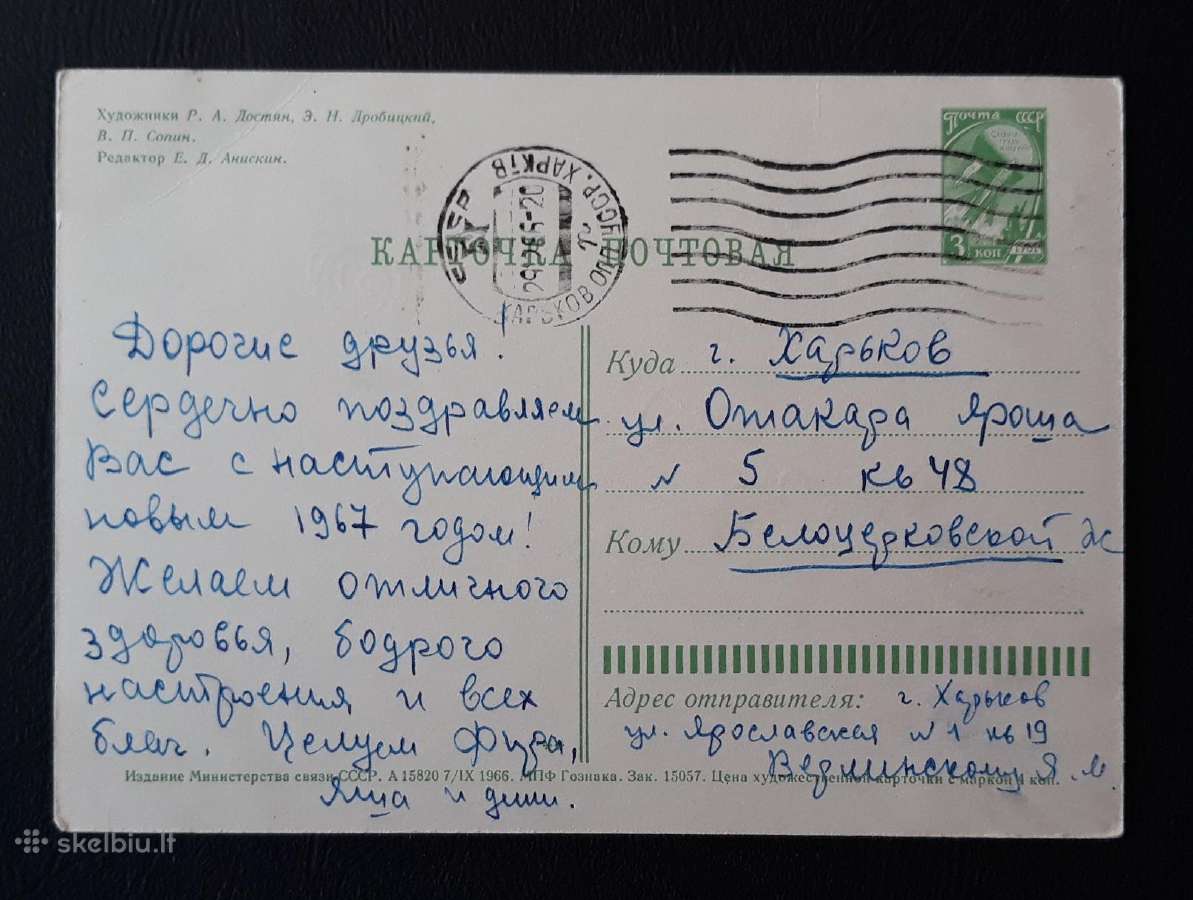 Художники Р. А. Достян, Э. Н. Дробицкий,
В. П. Сопин.
Редактор Е. Д. Анискин.
Почта СССР
3 коп
ХАРКІВ
КАРТОЧКА ПОЧТОВАЯ
Дорогие друзья!
Сердечно поздравляем
Вас с наступающим
новым 1967 годом!
Желаем отличного
здоровья, бодрого
настроения и всех
благ. Целуем Фира,
Яша и
Куда г. Харьков
ул. Отакара Яроша
N 5 кв 48
Кому Белоцерковской
Адрес отправителя: г. Харьков
ул. Ярославская N 1 кв 19
Верлинскому Я. М.
Издание Министерства связи СССР. А 15820 7/IX 1966. МПФ Гознака. Зак. 15057. Цена художественной карточки с маркой 4 коп.
skelbiu.lt